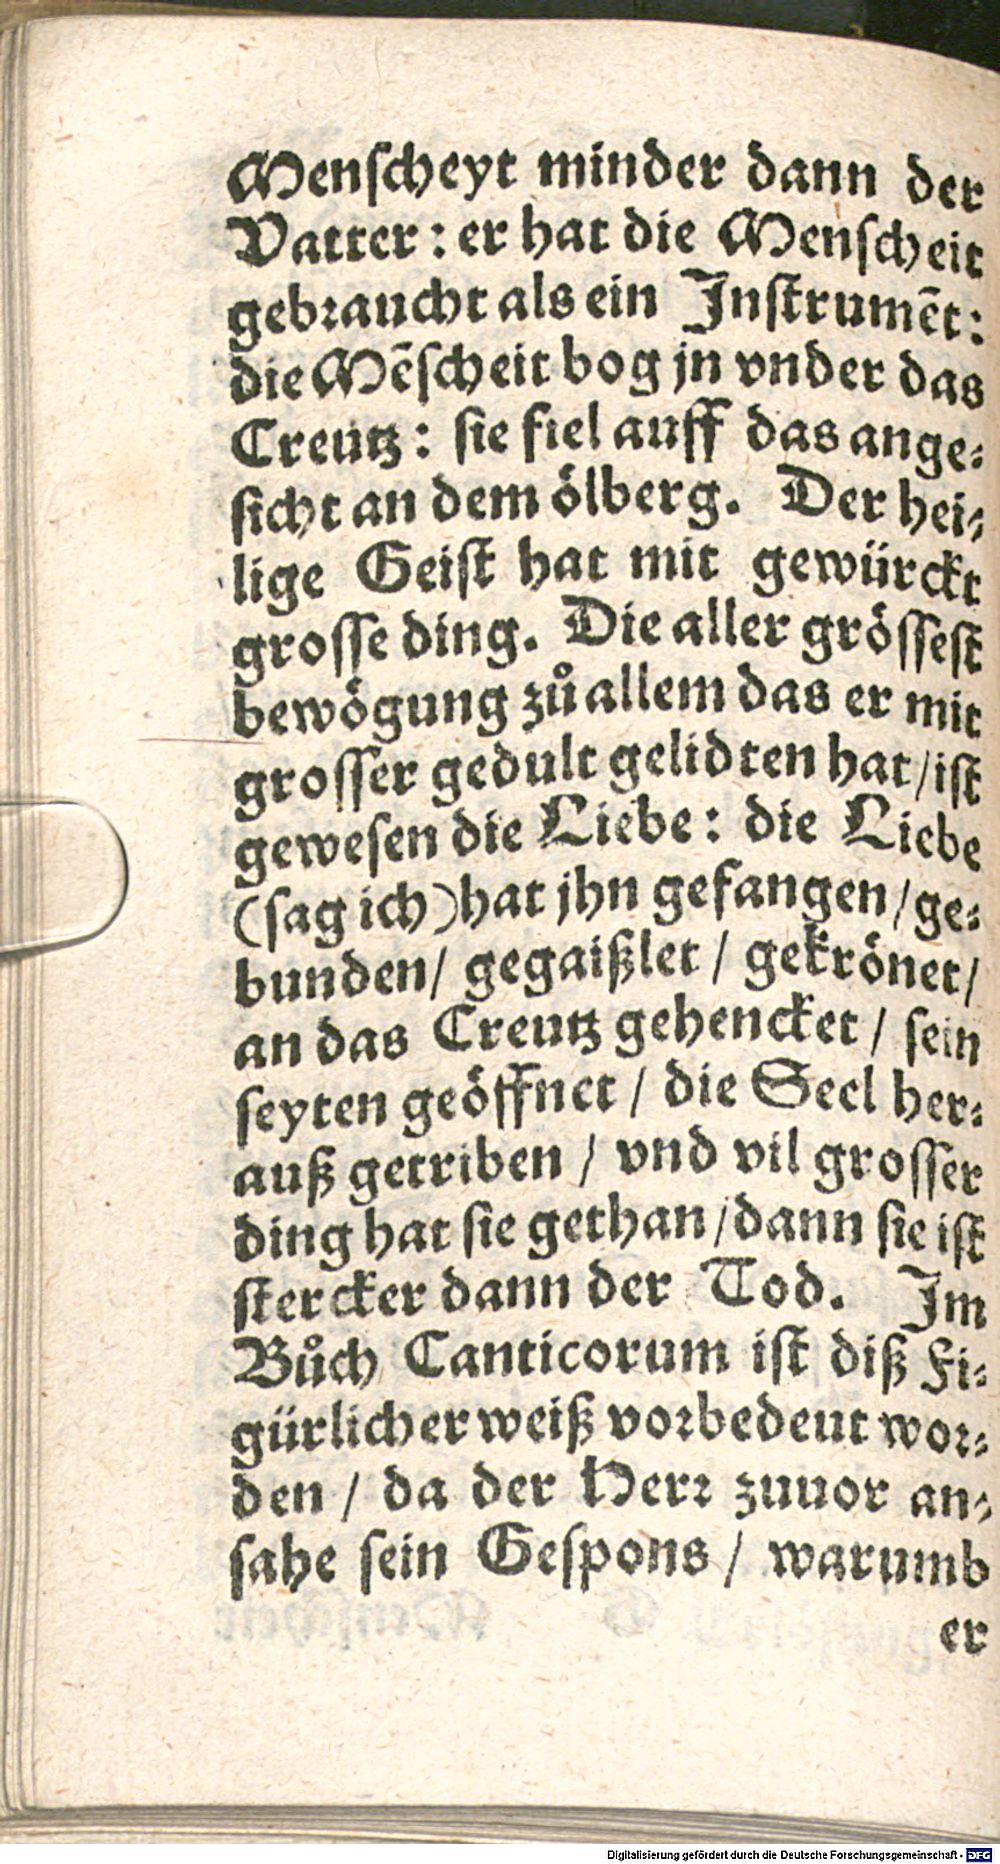 Menſcheyt minder dann der
Vatter: er hat die Menſcheit
gebꝛaucht als ein Inſtrumēt:
die Mēſcheit bog jn vnder das
Creütz: ſie fiel auff das ange⸗
ſicht an dem ölberg. Der hei⸗
lige Geiſt hat mit gewürckt
groſſe ding. Die aller gröſſeſt
bewögung zů allem das er mit
groſſer gedult gelidten hat/iſt
geweſen die Liebe: die Liebe
(ſag ich) hat jhn gefangen/ge⸗
bunden/ gegaißlet / gekrönet/
an das Creutz gehencket / ſein
ſeyten geöffnet / die Seel her⸗
auß getriben / vnd vil groſſer
ding hat ſie gethan/dann ſie iſt
ſtercker dann der Tod. Im
Bůch Canticorum iſt diß Fi⸗
gürlicher weiß voꝛbedeut woꝛ⸗
den / da der Herꝛ zuuor an⸗
ſahe ſein Geſpons / warumb
er
Digitalisierung gefördert durch die Deutsche Forschungsgemeinschaft - DFG